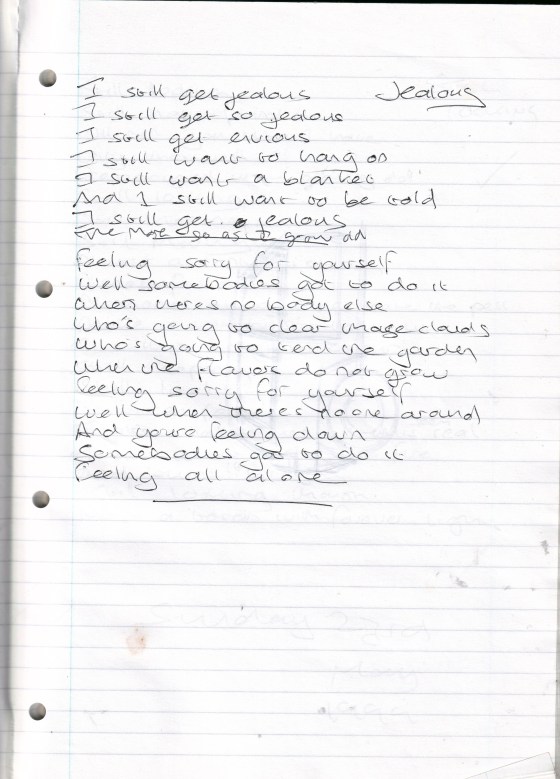 Jealous
I still get jealous
I still get so jealous
I still get envious
I still want to hang on
I still want a blanket
And I still want to be told
I still get jealous
The more so as I grow old
Feeling sorry for yourself
Well somebodies got to do it
When theres nobody else
Who's going to clear those clouds
Who's going to tend the garden
When the flowers do not grow
Feeling sorry for yourself
Well when theres no one around
And youre feeling down
Somebodies got to do it
Feeling all alone